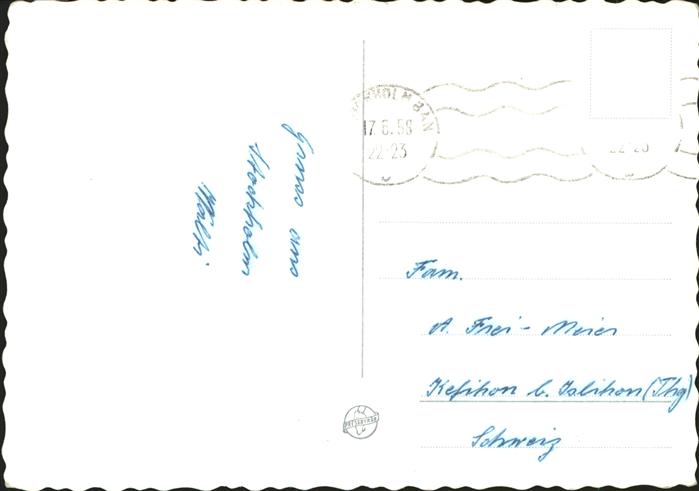 Gruss aus
Stockholm
Walti
STOCKHOLM BAN
17.6.59
22-23
22-23
Fam.
A. Frei-Meier
Kefikon b. Islikon (Thg)
Schweiz